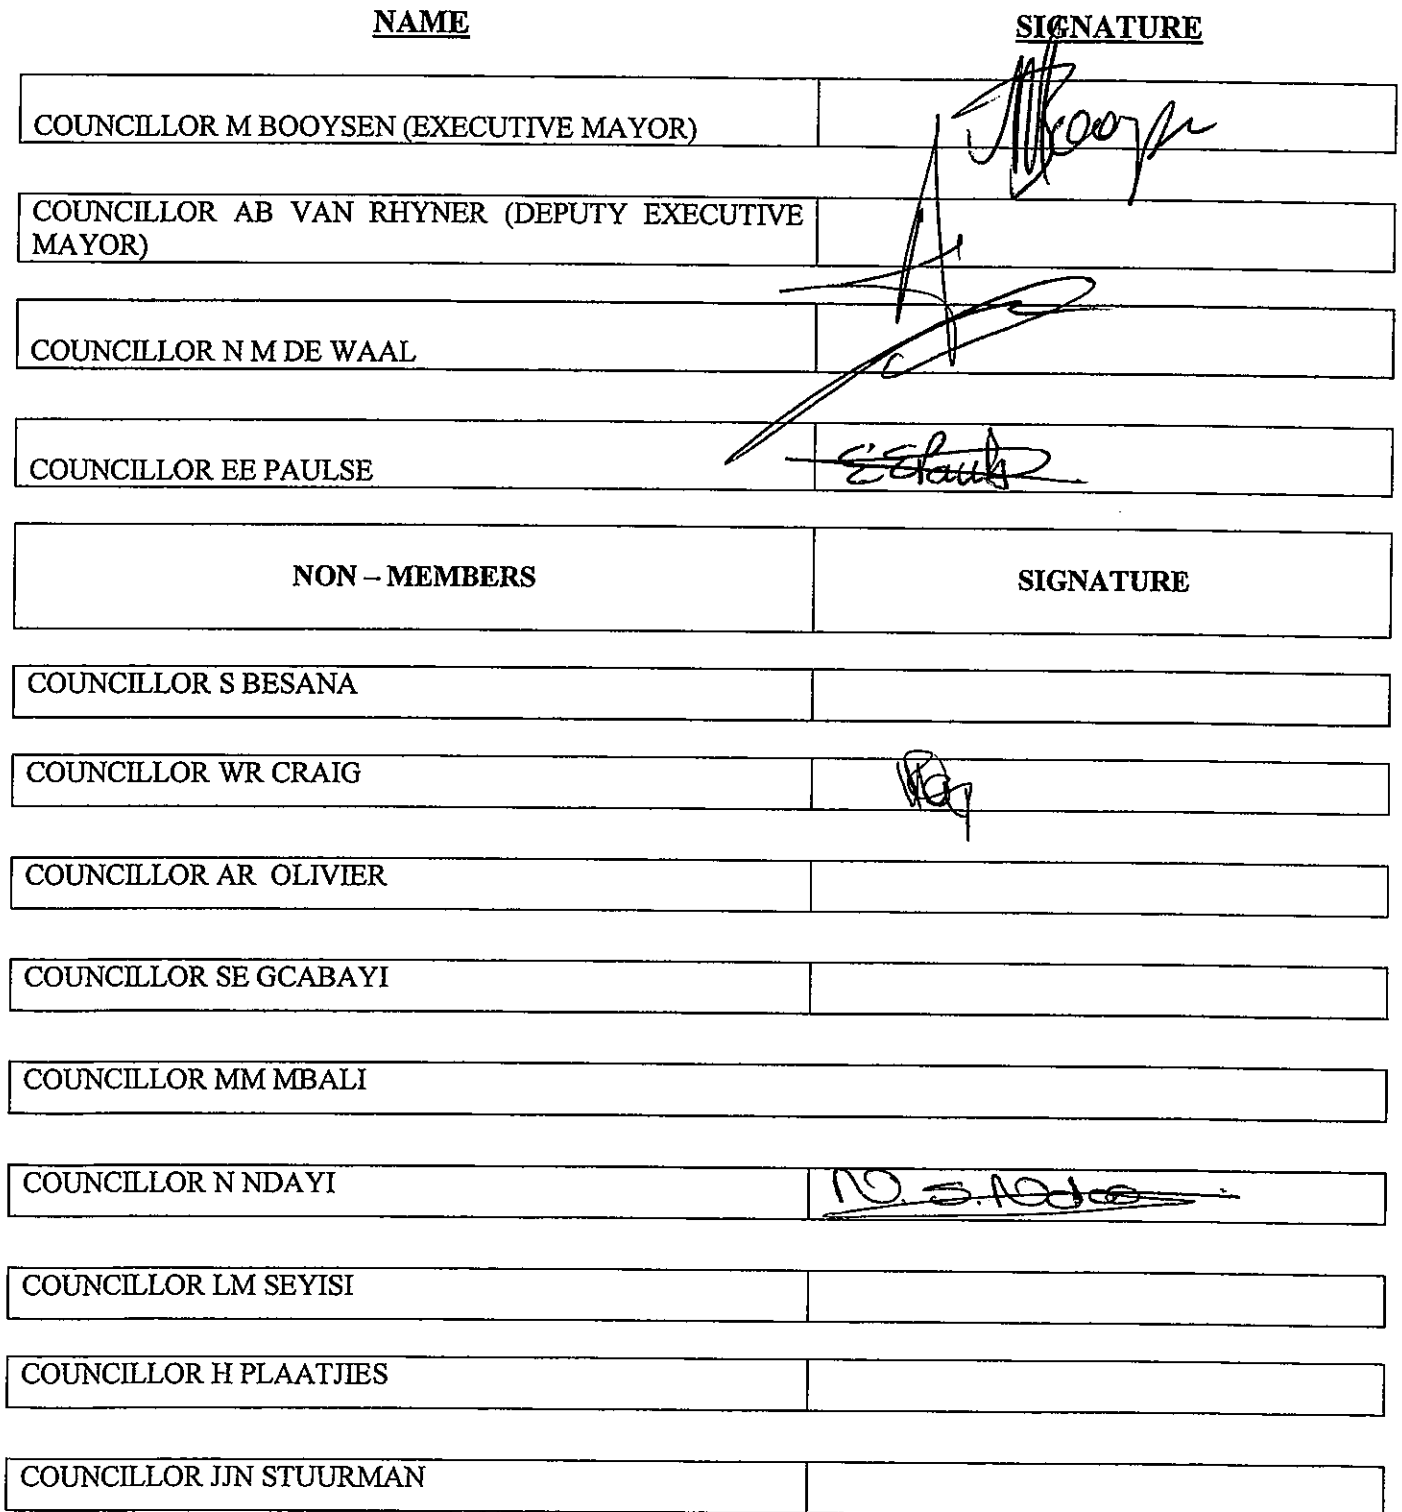 NAME SIGNATURE
COUNCILLOR M BOOYSEN (EXECUTIVE MAYOR)
COUNCILLOR AB VAN RHYNER (DEPUTY EXECUTIVE
MAYOR)
COUNCILLOR N M DE WAAL
COUNCILLOR EE PAULSE
NON – MEMBERS SIGNATURE
COUNCILLOR S BESANA
COUNCILLOR WR CRAIG
COUNCILLOR AR OLIVIER
COUNCILLOR SE GCABAYI
COUNCILLOR MM MBALI
COUNCILLOR N NDAYI
COUNCILLOR LM SEYISI
COUNCILLOR H PLAATJIES
COUNCILLOR JJN STUURMAN